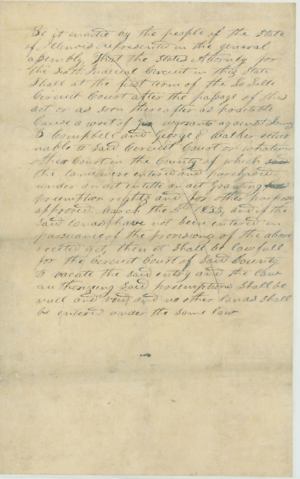 Be it enacted by the people of the State
of Illinois represented in the general
assembly That the States Attorney for
the sixth Judicial Circuit in this State
shall at the first term of the La Salle
Circuit Court after the passage of this
act or as soon thereafter as practable
Cause a writ of to against
D Campbell and George E Walker
nable to said Circuit Court or whatever
other Court in the County of which
the lands were entered and purchased
under an act entitle an act granting
preemption rights and for other purposes
approved March the 5th and if the
said lands have not been entered in
pursuance of the provisions of the above
recited act, then it shall be lawfull
for the Circuit Court of said County
to vacate the said entry and the law
authorizing said preemption shall be
null and void and no other lands shall
be entered under the same law